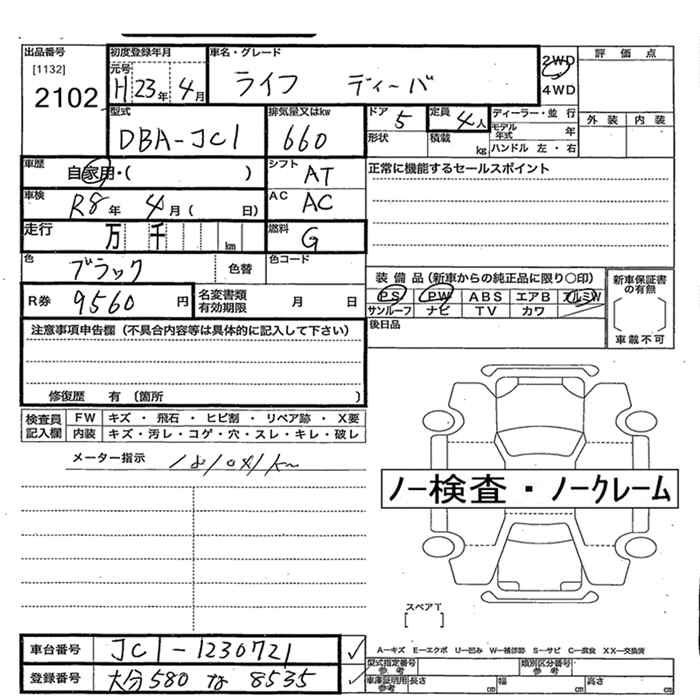 出品番号 初度登録年月 車名・グレード 評価点
[1132] 元号 2WD
2102 H23年4月 ライフ ディーバ 4WD
型式 排気量又はkw ドア 定員 ディーラー・並行 外装 内装
DBA-JC1 660 5 4人 モデル年式 年
形状 積載 kg ハンドル 左・右
車歴 自家用・( ) シフト AT 正常に機能するセールスポイント
車検 R8年 4月( 日) AC AC
走行 万 千 km 燃料 G
色 ブラック 色替 色コード
装備品(新車からの純正品に限り○印) 新車保証書の有無
R券 9560円 名変書類有効期限 月 日 PS PW ABS エアB アルミW
サンルーフ ナビ TV カワ
注意事項申告欄(不具合内容等は具体的に記入して下さい) 後日品 車載不可
修復歴 有 〔箇所 〕
検査員 FW キズ・飛石・ヒビ割・リペア跡・X要
記入欄 内装 キズ・汚レ・コゲ・穴・スレ・キレ・破レ
メーター指示
ノー検査・ノークレーム
スペアT
[ ]
車台番号 JC1-1230721 A−キズ E−エクボ U−凹み W−補修跡 S−サビ C−腐食 XX−交換済
型式指定番号 参考 類別区分番号 参考
登録番号 大分 580 な 8535 車庫証明用 参考 長さ cm 幅 cm 高さ cm